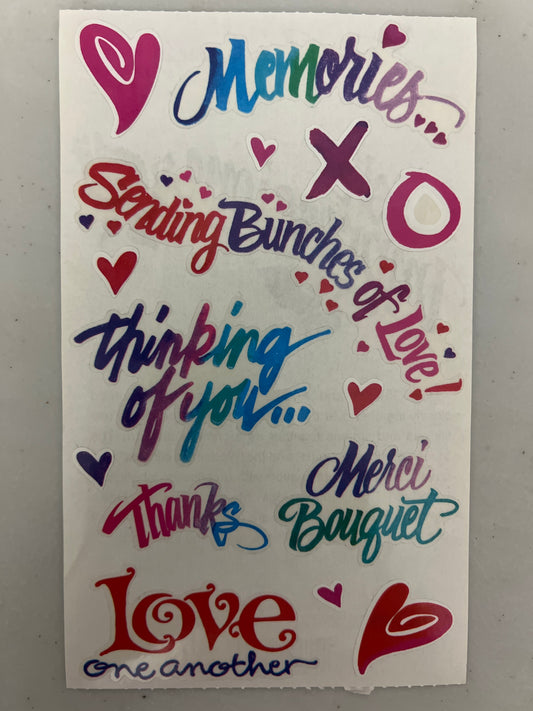 Memories...
X O
Sending Bunches of Love!
thinking
of you...
Thanks
Merci
Bouquet
Love
one another